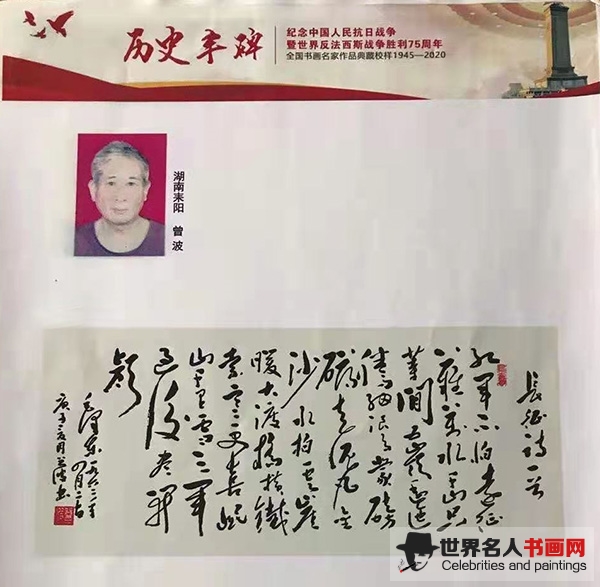 历史丰碑
纪念中国人民抗日战争
暨世界反法西斯战争胜利75周年
全国书画名家作品典藏校样1945—2020
湖南耒阳 曾波
長征詩一首
红军不怕远征
难万水千山只
等闲五岭逶迤
腾细浪乌蒙磅
礴走泥丸金
沙水拍云崖
暖大渡桥横铁
索寒更喜岷
山千里雪三军
过后尽开
颜
毛泽东一九六二年
四月二十日
庚子 月曾波书
世界名人书画网
Celebrities and paintings